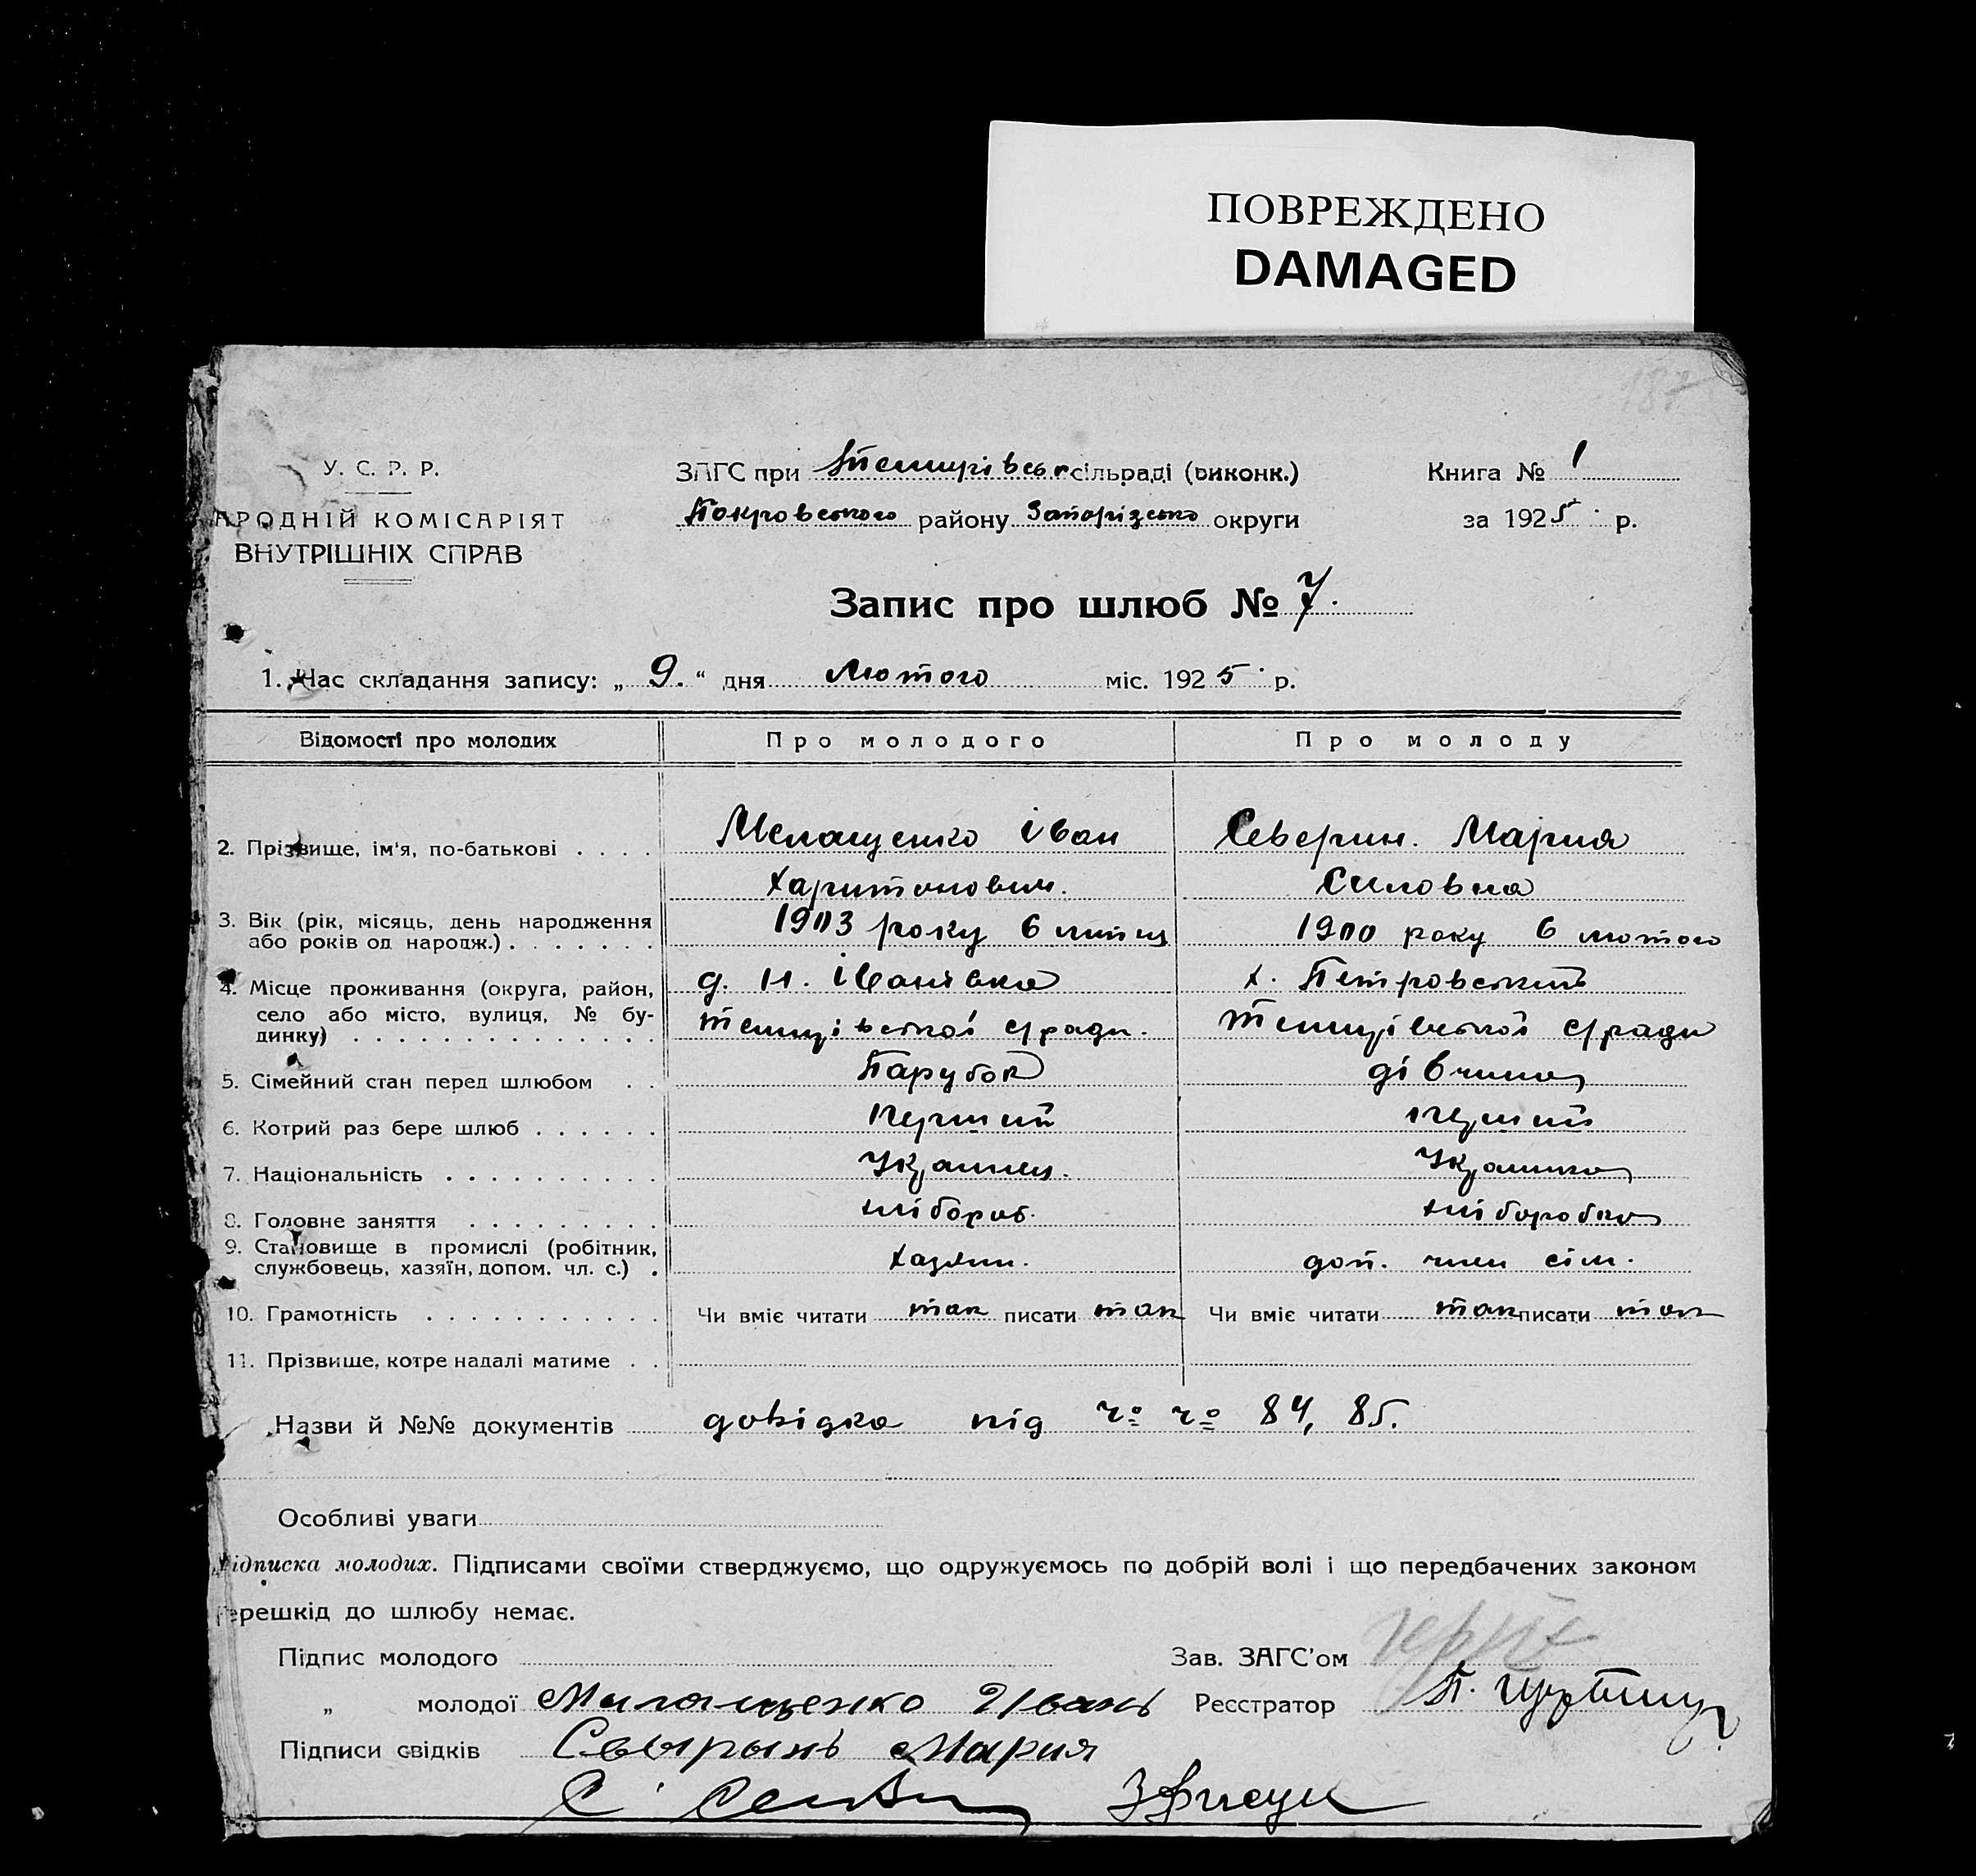 ПОВРЕЖДЕНО
DAMAGED
У. С. Р. Р.
АРОДНІЙ КОМІСАРІЯТ
ВНУТРІШНІХ СПРАВ
ЗАГС при Темирівськ сільраді (виконк.)
Покровського району Запорізько округи
Книга № 1
за 1925 р.
Запис про шлюб № 7.
1. Час складання запису: „ 9. “ дня Лютого міс. 1925 р.
Відомості про молодих Про молодого Про молоду
2. Прізвище, ім'я, по-батькові . . . . Мелащенко Іван Северин. Мария
Харитонович. Силовна
3. Вік (рік, місяць, день народження 1903 року 6 липня 1900 року 6 лютого
або років од народж.) . . . . . . .
4. Місце проживання (округа, район, д. Н. Іванівка х. Петровський
село або місто, вулиця, № бу- Темирівської с/ради. Темирівської с/ради
динку) . . . . . . . . . . . . . .
5. Сімейний стан перед шлюбом . . Парубок дівчина
6. Котрий раз бере шлюб . . . . . . Перший перший
7. Національність . . . . . . . . . . Украинец. Украинка
8. Головне заняття . . . . . . . . . хлібороб. хлiборобка
9. Становище в промислі (робітник, хазяин. доп. член сім.
службовець, хазяїн, допом. чл. с.) .
10. Грамотність . . . . . . . . . . . Чи вміє читати так писати так Чи вміє читати так писати так
11. Прізвище, котре надалі матиме . .
Назви й №№ документів довідка під ч° ч° 84, 85.
Особливі уваги
Підписка молодих. Підписами своїми стверджуємо, що одружуємось по добрій волі і що передбачених законом
перешкід до шлюбу немає.
Підпис молодого Зав. ЗАГС'ом
„ молодої Милащенко Иванъ Реєстратор П.
Підписи свідків Свырынь Мария